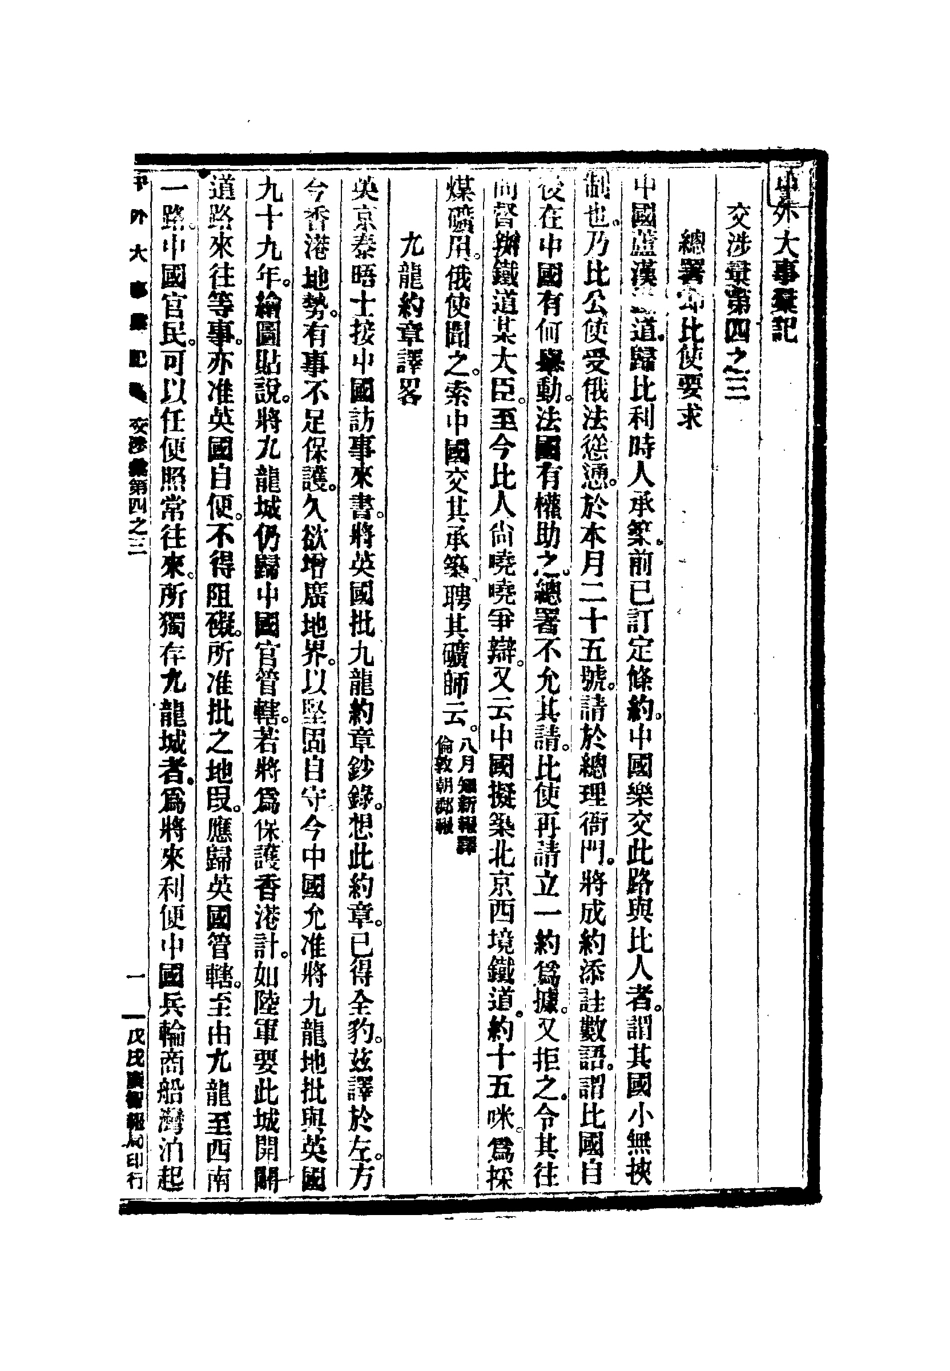 中外大事彙記
交涉彙第四之三
總署卻比使要求
中國蘆漢道歸比利時人承築。前已訂定條約。中國樂交此路與比人者。謂其國小無挾
制也。乃比公使受俄法慫慂。於本月二十五號。請於總理衙門。將成約添註數語。謂比國自
後在中國有何舉動。法國有權助之。總署不允其請。比使再請立一約爲據。又拒之。令其往
向督辦鐵道某大臣。至今比人尙嘵嘵爭辯。又云中國擬築北京西境鐵道。約十五咪。爲採
煤礦用。俄使聞之。索中國交其承築。聘其礦師云。八月知新報譯
倫敦朝郵報
九龍約章譯畧
英京泰晤士接中國訪事來書。將英國批九龍約章鈔錄。想此約章。已得全豹。玆譯於左。方
今香港地勢。有事不足保護。久欲增廣地界。以堅固自守。今中國允准將九龍地批與英國
九十九年。繪圖貼說。將九龍城仍歸中國官管轄。若將爲保護香港計。如陸軍要此城開闢
道路來往等事。亦准英國自便。不得阻礙。所准批之地段。應歸英國管轄。至由九龍至西南
一路。中國官民。可以任便照常往來。所獨存九龍城者。爲將來利便中國兵輪商船灣泊起
中外大事彙記 交涉彙第四之三
一
戊戌廣智報局印行